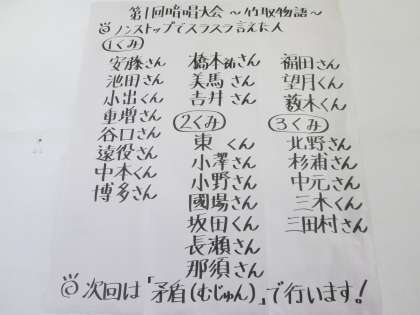 第1回暗唱大会 ～竹取物語～
ノンストップでスラスラ言えた人
1くみ
安藤さん
池田さん
小出くん
車増さん
谷口さん
遠役さん
中本くん
博多さん
橋本祐さん
美馬さん
吉井さん
2くみ
東くん
小澤さん
小野さん
國場さん
坂田くん
長瀬さん
那須さん
福田さん
望月くん
藪木くん
3くみ
北野さん
杉浦さん
中元さん
三木くん
三田村さん
次回は「矛盾(むじゅん)」で行います!